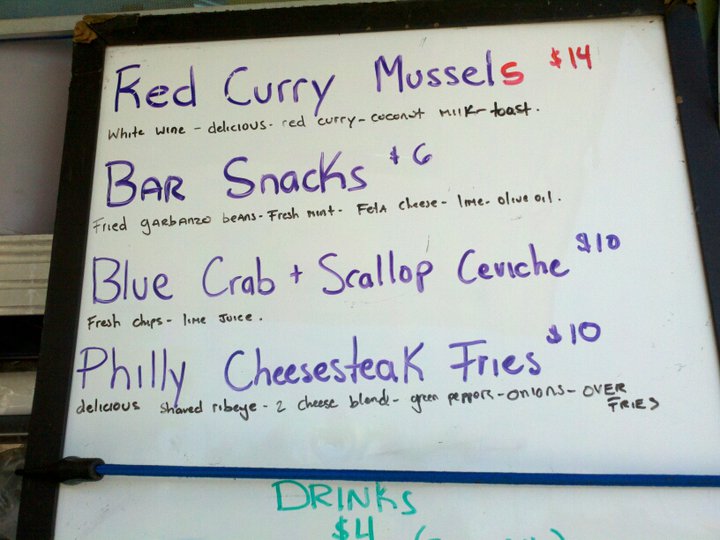 Red Curry Mussels $14
White wine - delicious - red curry - coconut milk - toast.
BAR Snacks $6
Fried garbanzo beans - Fresh mint - Feta cheese - lime - olive oil.
Blue Crab + Scallop Ceviche $10
Fresh chips - lime Juice.
Philly Cheesesteak Fries $10
delicious shaved ribeye - 2 cheese blend - green peppers - onions - OVER
FRIES
DRINKS
$4